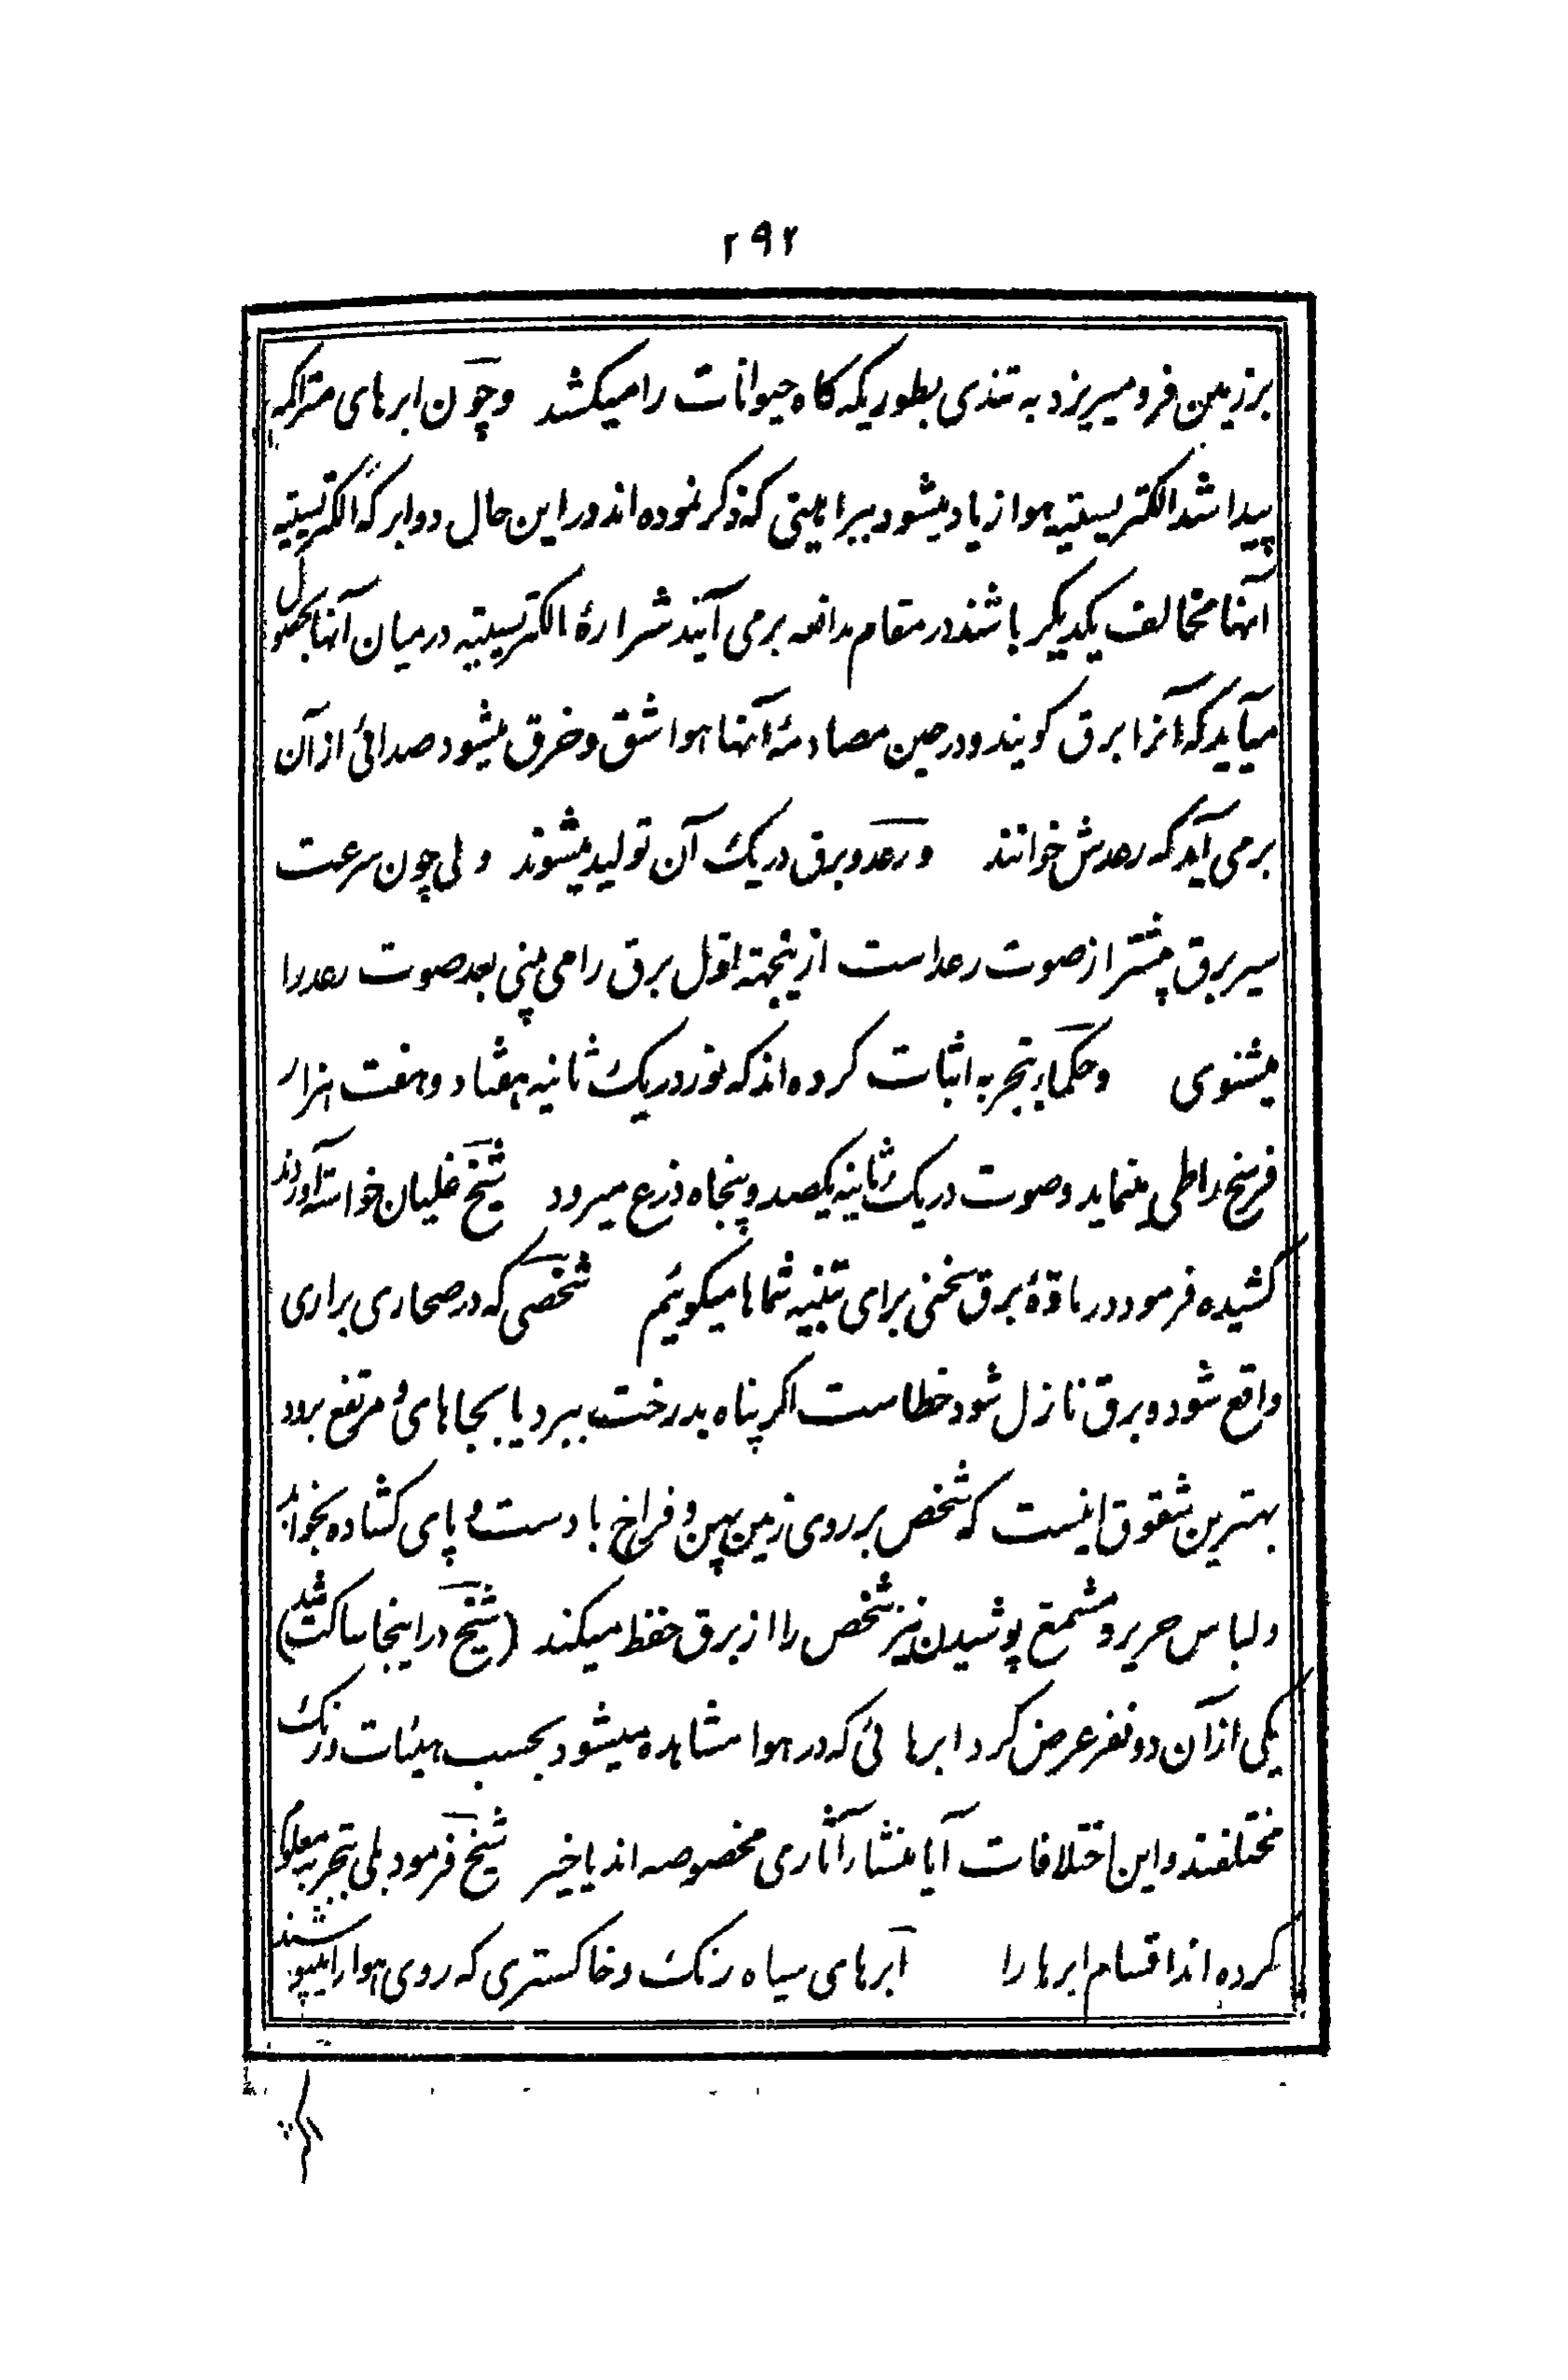 ۲۹۲
برزمین فرو میریزد به تندی بطوریکه کاه حیوانات را میکشد وچون ابرهای متراکمه
پیدا شد الکتریسیتیه هوا زیاد میشود ببراهینی که ذکر نموده اند در این حال دو ابر که الکتریسیتیه
آنها مخالف یکدیکر باشند در مقام مدافعه برمی آیند شرارهٔ الکتریسیتیه در میان آنها بحصول
میآید که آنرا برق کویند ودرحین مصادمهٔ آنها هوا شق وخرق میشود صدائی از آن
برمی آید که رعدش خوانند ورعد وبرق در یک آن تولید میشوند ولی چون سرعت
سیر برق بیشتر از صوت رعد است ازینجهة اوّل برق را می بینی بعد صوت رعد را
میشنوی وحکماء بتجربه اثبات کرده اند که نور در یک ثانیه هفتاد وهفت هزار
فرسخ را طی مینماید وصوت در یک ثانیه یکصد وپنجاه ذرع میرود شیخ غلیان خواست آوردند
کشیده فرمود در مادّهٔ برق سخنی برای تنبیه شماها میکویم شخصی که در صحاری براری
واقع شود وبرق نازل شود خطاست اکر پناه بدرخت ببرد یا بجاهای مرتفع برود
بهترین شقوق اینست که شخص بر روی زمین پهن و فراخ با دست و پای کشاده بخوابد
ولباس حریر و مشمع پوشیدن نیز شخص را از برق حفظ میکند (شیخ در اینجا ساکت شد)
یکی از آن دو نفر عرض کرد ابرهائی که در هوا مشاهده میشود بحسب هیئات ورنک
مختلفند واین اختلافات آیا منشاء آثاری مخصوصه اند یا خیر شیخ فرمود بلی بتجربه معلوم
کرده اند اقسام ابرها را ابرهای سیاه رنک وخاکستری که روی هوا را میپوشند